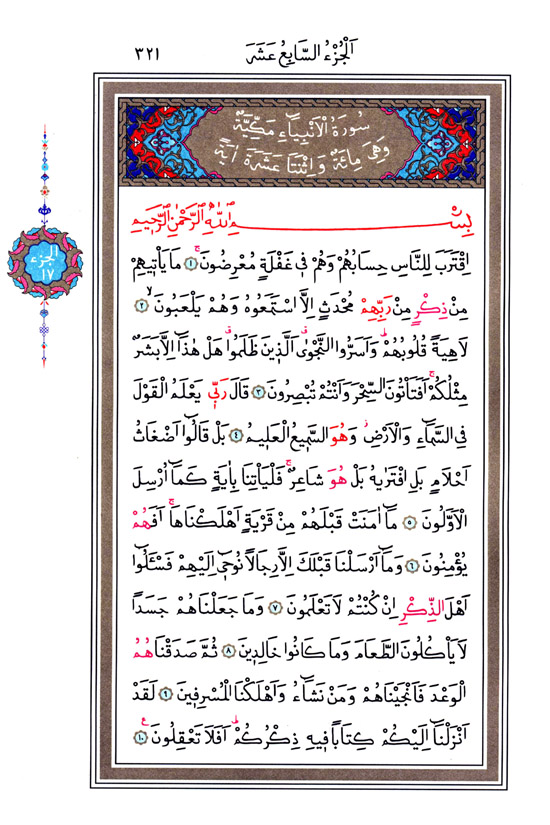 اَلْجُزْءُ السَّابِعُ عَشَرَ ٣٢١
سُورَةُ الْاَنْبِيَٓاءِ مَكِّيَّةٌ
وَهِيَ مِائَةٌ وَاِثْنَتَا عَشْرَةَ اٰيَةً
بِسْــــــــمِ اللّٰهِ الرَّحْمٰنِ الرَّحٖيمِ
اِقْتَرَبَ لِلنَّاسِ حِسَابُهُمْ وَهُمْ فٖي غَفْلَةٍ مُعْرِضُونَۚ ﴿١﴾ مَا يَأْتٖيهِمْ
مِنْ ذِكْرٍ مِنْ رَبِّهِمْ مُحْدَثٍ اِلَّا اسْتَمَعُوهُ وَهُمْ يَلْعَبُونَۙ ﴿٢﴾
لَاهِيَةً قُلُوبُهُمْؕ وَاَسَرُّوا النَّجْوٰىۗ اَلَّذٖينَ ظَلَمُواۗ هَلْ هٰذَٓا اِلَّا بَشَرٌ
مِثْلُكُمْۚ اَفَتَأْتُونَ السِّحْرَ وَاَنْتُمْ تُبْصِرُونَ ﴿٣﴾ قَالَ رَبّٖي يَعْلَمُ الْقَوْلَ
فِي السَّمَٓاءِ وَالْاَرْضِؗ وَهُوَ السَّمٖيعُ الْعَلٖيمُ ﴿٤﴾ بَلْ قَالُٓوا اَضْغَاثُ
اَحْلَامٍ بَلِ افْتَرٰيهُ بَلْ هُوَ شَاعِرٌۚ فَلْيَأْتِنَا بِاٰيَةٍ كَمَٓا اُرْسِلَ
الْاَوَّلُونَ ﴿٥﴾ مَٓا اٰمَنَتْ قَبْلَهُمْ مِنْ قَرْيَةٍ اَهْلَكْنَاهَاۚ اَفَهُمْ
يُؤْمِنُونَ ﴿٦﴾ وَمَٓا اَرْسَلْنَا قَبْلَكَ اِلَّا رِجَالًا نُوحٖٓي اِلَيْهِمْ فَسْـَٔلُٓوا
اَهْلَ الذِّكْرِ اِنْ كُنْتُمْ لَا تَعْلَمُونَ ﴿٧﴾ وَمَا جَعَلْنَاهُمْ جَسَدًا
لَا يَأْكُلُونَ الطَّعَامَ وَمَا كَانُوا خَالِدٖينَ ﴿٨﴾ ثُمَّ صَدَقْنَاهُمُ
الْوَعْدَ فَاَنْجَيْنَاهُمْ وَمَنْ نَشَٓاءُ وَاَهْلَكْنَا الْمُسْرِفٖينَ ﴿٩﴾ لَقَدْ
اَنْزَلْنَٓا اِلَيْكُمْ كِتَابًا فٖيهِ ذِكْرُكُمْؕ اَفَلَا تَعْقِلُونَࣖ ﴿١٠﴾
الجزء
١٧